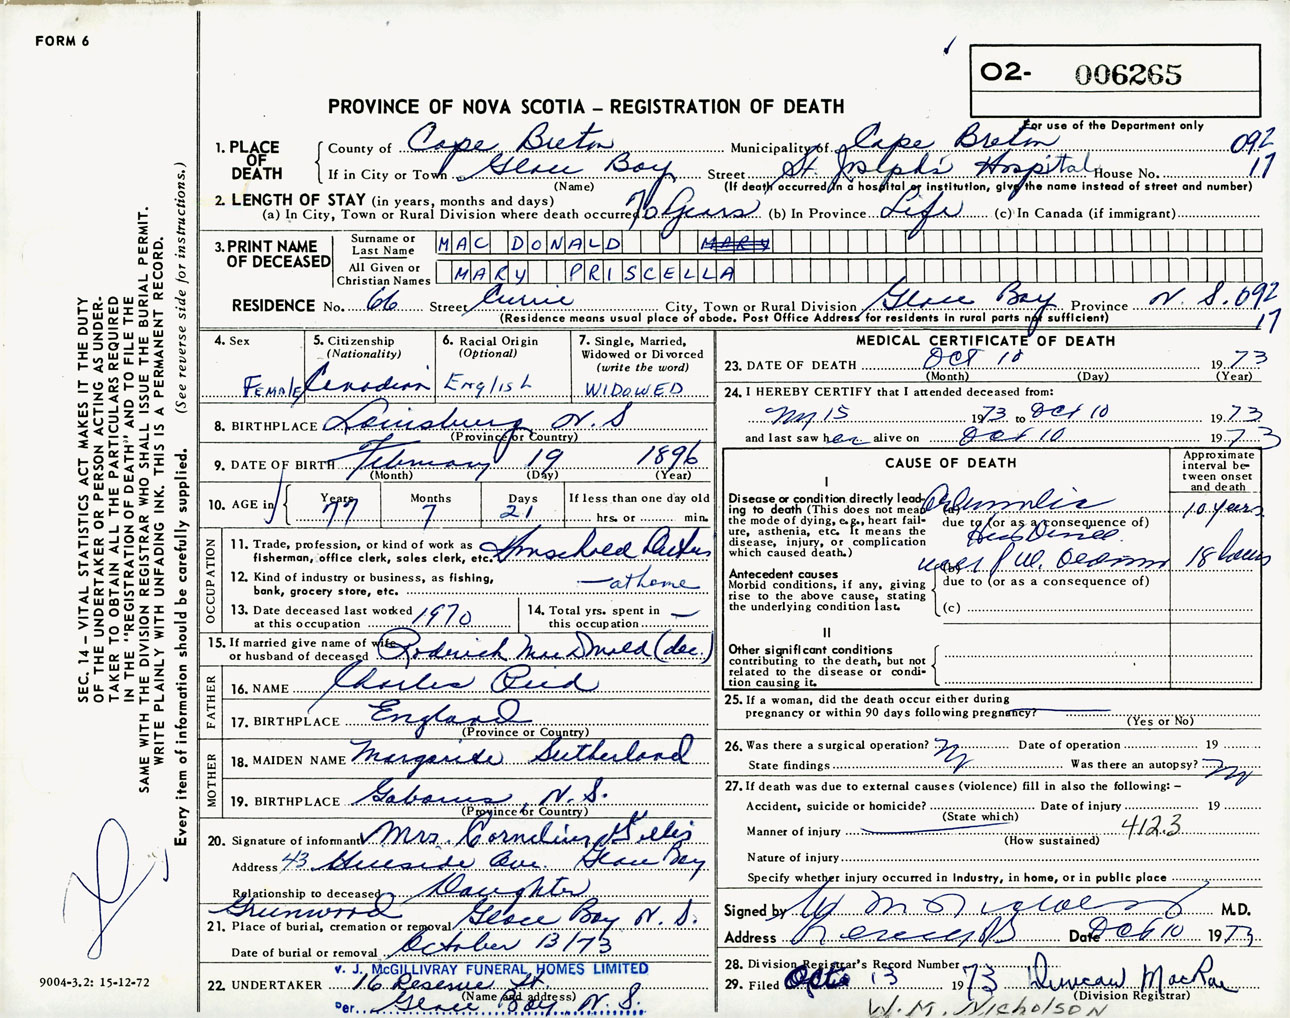 FORM 6
O2- 006265
PROVINCE OF NOVA SCOTIA – REGISTRATION OF DEATH
For use of the Department only
1. PLACE OF DEATH
County of Cape Breton Municipality of Cape Breton 092
If in City or Town Glace Bay Street St. Joseph's Hospital House No. 17
(Name) (If death occurred in a hospital or institution, give the name instead of street and number)
2. LENGTH OF STAY (in years, months and days)
(a) In City, Town or Rural Division where death occurred 70 Years (b) In Province Life (c) In Canada (if immigrant)
3. PRINT NAME OF DECEASED
Surname or Last Name MAC DONALD MARY
All Given or Christian Names MARY PRISCELLA
RESIDENCE No. 66 Street Currie City, Town or Rural Division Glace Bay Province N. S. 092
17
(Residence means usual place of abode. Post Office Address for residents in rural parts not sufficient)
4. Sex
FEMALE
5. Citizenship
(Nationality)
Canadian
6. Racial Origin
(Optional)
English
7. Single, Married,
Widowed or Divorced
(write the word)
WIDOWED
8. BIRTHPLACE Louisburg N. S
(Province or Country)
9. DATE OF BIRTH February 19 1896
(Month) (Day) (Year)
10. AGE in
Years Months Days If less than one day old
77 7 21 hrs. or min.
OCCUPATION
11. Trade, profession, or kind of work as
fisherman, office clerk, sales clerk, etc. Household Duties
12. Kind of industry or business, as fishing,
bank, grocery store, etc. at home
13. Date deceased last worked
at this occupation 1970
14. Total yrs. spent in
this occupation —
15. If married give name of wife
or husband of deceased Roderick MacDonald (dec.)
FATHER
16. NAME Charles Reid
17. BIRTHPLACE England
(Province or Country)
MOTHER
18. MAIDEN NAME Margaride Sutherland
19. BIRTHPLACE Gabarus, N. S.
(Province or Country)
20. Signature of informant Mrs. Cornelius Gillis
Address 43 Hillside Ave. Glace Bay
Relationship to deceased Daughter
Greenwood Glace Bay N. S.
21. Place of burial, cremation or removal
Date of burial or removal October 13/73
V. J. McGILLIVRAY FUNERAL HOMES LIMITED
22. UNDERTAKER 16 Reserve St.
(Name and address)
Per Glace Bay N. S.
MEDICAL CERTIFICATE OF DEATH
23. DATE OF DEATH Oct 10 19 73
(Month) (Day) (Year)
24. I HEREBY CERTIFY that I attended deceased from:
15 1973 to Oct 10 1973
and last saw her alive on Oct 10 1973
CAUSE OF DEATH
Approximate
interval be-
tween onset
and death
I
Disease or condition directly lead-
ing to death (This does not mean
the mode of dying, e.g., heart fail-
ure, asthenia, etc. It means the
disease, injury, or complication
which caused death.)
(a) 10 years
due to (or as a consequence of)
(b) 18 hours
due to (or as a consequence of)
(c)
Antecedent causes
Morbid conditions, if any, giving
rise to the above cause, stating
the underlying condition last.
II
Other significant conditions
contributing to the death, but not
related to the disease or condi-
tion causing it.
25. If a woman, did the death occur either during
pregnancy or within 90 days following pregnancy?
(Yes or No)
26. Was there a surgical operation? No Date of operation 19
State findings Was there an autopsy? No
27. If death was due to external causes (violence) fill in also the following: –
Accident, suicide or homicide? Date of injury 19
(State which)
Manner of injury 4123
(How sustained)
Nature of injury
Specify whether injury occurred in Industry, in home, or in public place
Signed by M.D.
Address Date Oct 10 1973
28. Division Registrar's Record Number
29. Filed Oct 13 1973 Duncan MacRae
(Division Registrar)
W. M. NICHOLSON
SEC. 14 – VITAL STATISTICS ACT MAKES IT THE DUTY
OF THE UNDERTAKER OR PERSON ACTING AS UNDER-
TAKER TO OBTAIN ALL THE PARTICULARS REQUIRED
IN THE "REGISTRATION OF DEATH" AND TO FILE THE
SAME WITH THE DIVISION REGISTRAR WHO SHALL ISSUE THE BURIAL PERMIT.
WRITE PLAINLY WITH UNFADING INK. THIS IS A PERMANENT RECORD.
Every item of information should be carefully supplied. (See reverse side for instructions.)
9004-3.2: 15-12-72